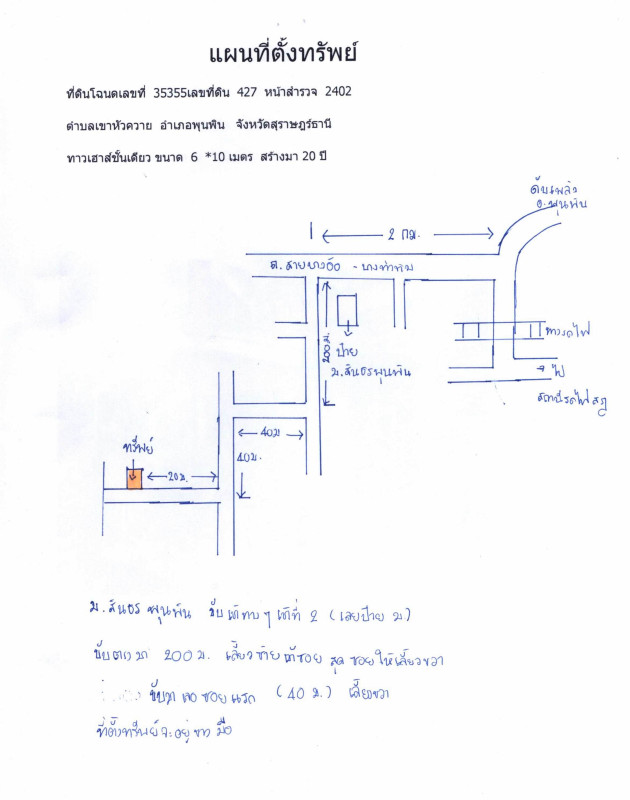 แผนที่ตั้งทรัพย์
ที่ดินโฉนดเลขที่ 35355เลขที่ดิน 427 หน้าสำรวจ 2402
ตำบลเขาหัวควาย อำเภอพุนพิน จังหวัดสุราษฎร์ธานี
ทาวเฮาส์ชั้นเดียว ขนาด 6 *10 เมตร สร้างมา 20 ปี
ดับเพลิง
อ.พุนพิน
2 กม.
ถ.สายบางอ้อ - บางท่าทิม
200 ม
ป้าย
ม.สินธรพุนพิน
ทางรถไฟ
→ ไป
สถานีรถไฟสฎ
40ม
40ม.
ทรัพย์
20ม.
ม.สินธร พุนพิน เข้า 2 (เลยป้าย ม.)
200 ม. เลี้ยวซ้ายเข้าซอย สุดซอยให้เลี้ยวขวา
ซอยแรก (40 ม.) เลี้ยวขวา
ที่ตั้งทรัพย์จะอยู่ขวามือ